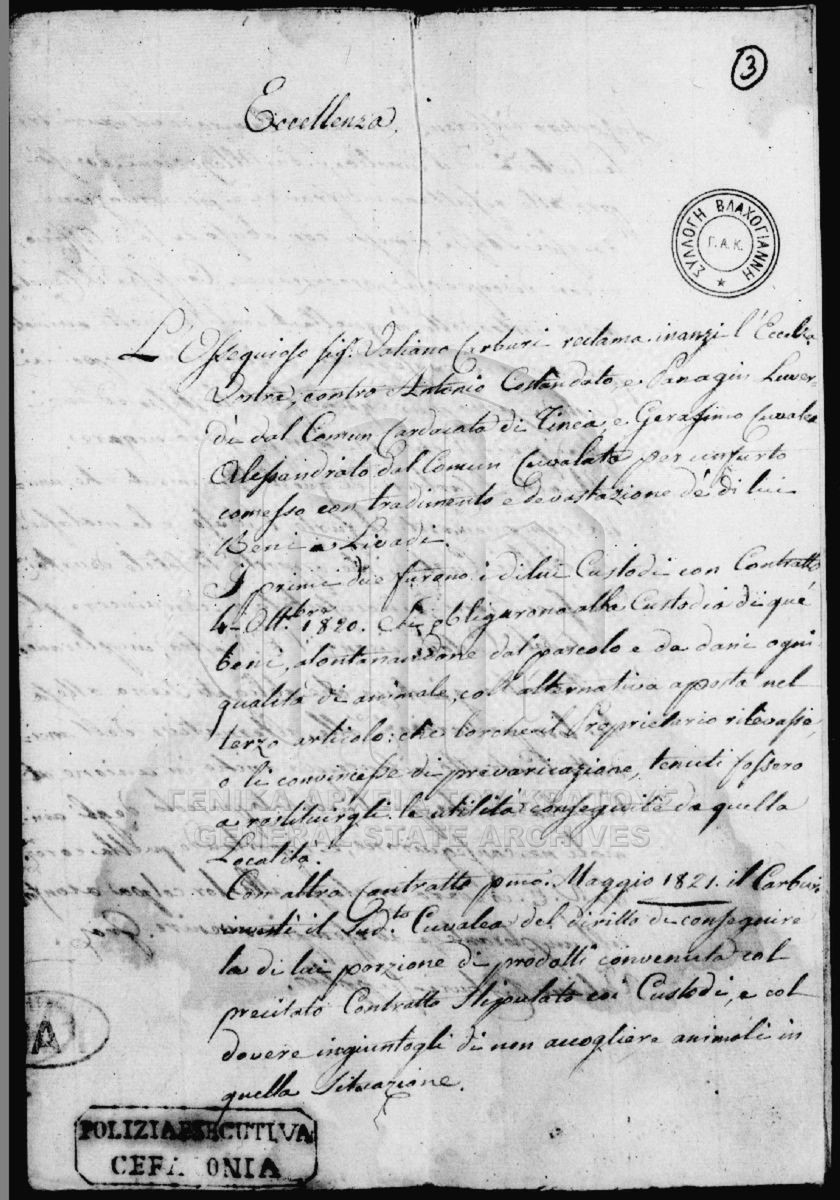 3
Eccellenza.
ΣΥΛΛΟΓΗ ΒΛΑΧΟΓΙΑΝΝΗ
Γ.Α.Κ.
L'Ossequioso Sigr. Valiano Carburi reclama inanzi l'Eccelza
Vostra, contro Antonio Costandato, e Panagin Luver-
dò dal Comun Cardacata di Tinea, e Gerasimo Cuvalea
Alessandrato dal Comun Cuvalata per un furto
comesso con tradimento e devastazione de di lui
Beni a Livadi.
I primi due furono i di lui Custodi con Contratto
4 Ott.bre 1820. Chi obligarono alla Custodia di que
beni, alontanandone dal pascolo e da dani ogni
qualità di animale, coll'alternativa aposta nel
terzo articolo: che lorche il Proprietario rilevasse,
o li convincesse di prevaricazione, tenuti fossero
a restituirgli le utilità conseguite da quella
Località.
Con altro Contratto pmo. Maggio 1821. il Carburi
investì il Sud.to Cuvalea del diritto di conseguire
la di lui porzione di prodotti convenuta col
precitato Contratto stipulato coi Custodi, e col
dovere ingiuntogli di non accogliere animali in
quella Situazione.
ΓΕΝΙΚΑ ΑΡΧΕΙΑ ΤΟΥ ΚΡΑΤΟΥΣ
GENERAL STATE ARCHIVES
A
POLIZIA ESECUTIVA
CEFALONIA